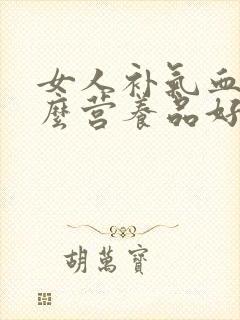 女人补氣血
麼营养品好
胡萬寶